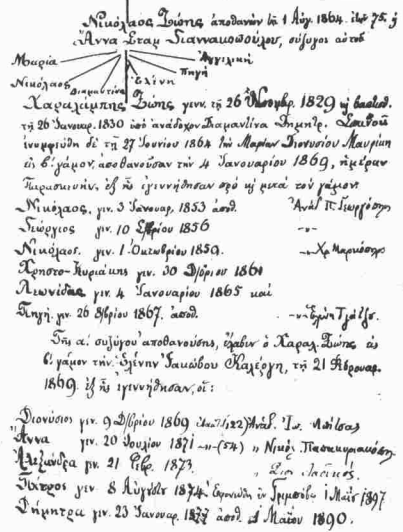 Νικόλαος Ζώης ἀποθανὼν τῇ 1 Αὐγ. 1864 ἐτῶν 75. ἡ
Ἄννα Σταμ Γιαννακοπούλου, σύζυγος αὐτοῦ
Μαρία Ἀγγελική
Πηγή
Νικόλαος Διαμαντίνα Ἑλένη
Χαραλάμπης Ζώης γενν. τῇ 26 1829
τῇ 26 Ἰανουαρ. 1830 ὑπὸ ἀνάδοχον Διαμαντίνα Δημητρ.
ἐνυμφεύθη δὲ τῇ 27 Ἰουνίου 1864 τὴν Μαρίαν Διονυσίου
εἰς β! γάμον, ἀποθανοῦσαν τὴν 4 Ἰανουαρίου 1869, ἡμέραν
Παρασκευήν, ἐξ ἧς ἐγεννήθησαν πρὸ καὶ μετὰ τὸν γάμον.
Νικόλαος, γεν. 3 Ἰανουαρ. 1853 ἀποθ. Ἀνάδ Π. Γεωργόπ
Γεώργιος γεν. 10 1856 -〃-
Νικόλαος. γεν. 1 Ὀκτωβρίου 1859. -〃-
Χρηστο-Κυριάκης γεν. 30 1861
Λεωνίδας γεν. 4 Ἰανουαρίου 1865 καὶ
Πηγή. γεν. 26 1867. ἀποθ. -〃- Ἑλένη
Τῆς α. συζύγου ἀποθανούσης, ἔλαβεν ὁ Χαραλ. Ζώης εἰς
β! γάμον τὴν Ἑλένην Ἰακώβου Καλέργη, τῇ 21 Φεβρουαρ.
1869. ἐξ ἧς ἐγεννήθησαν, οἱ:
Διονύσιος γεν. 9 1869 (22) Ἀνάδ. Ἰω.
Ἄννα γεν. 20 Ἰουλίου 1871 -〃- (54) 〃
Ἀλεξάνδρα γεν. 21 Φεβρ. 1873. 〃
Πέτρος γεν. 8 Αὐγούστ 1874. 1 Μαΐου 1897
Δήμητρα γεν. 23 Ἰανουαρ. 1877 ἀποθ. 1 Μαΐου 1890.